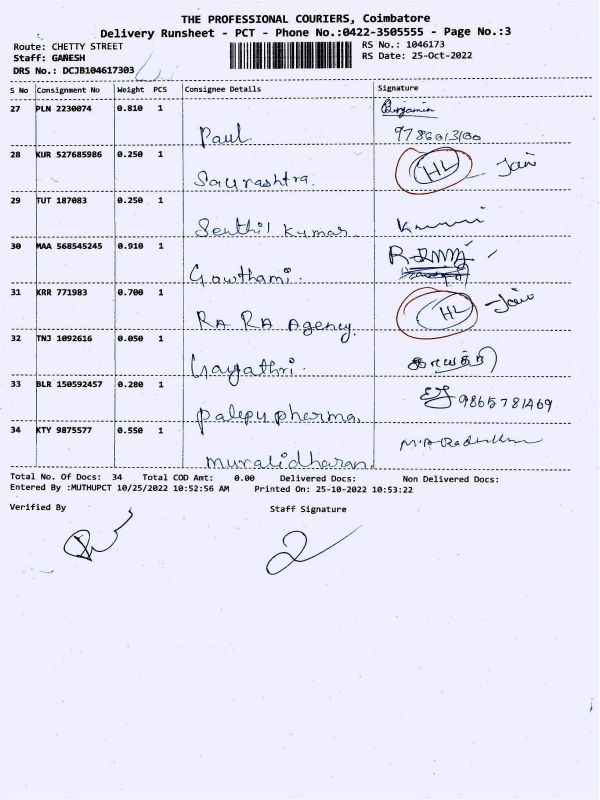 THE PROFESSIONAL COURIERS, Coimbatore
Delivery Runsheet - PCT - Phone No.:0422-3505555 - Page No.:3
Route: CHETTY STREET
RS No.: 1046173
Staff: GANESH
RS Date: 25-Oct-2022
DRS No.: DCJB104617303
S No Consignment No Weight PCS Consignee Details Signature
27 PLN 2230074 0.810 1
Benjamin
Paul
9786013100
28 KUR 527685986 0.250 1
HL Jain
Saurashtra.
29 TUT 187083 0.250 1
Senthil Kumar
30 MAA 568545245 0.910 1
Gowthami.
31 KRR 771983 0.700 1
HL Jain
RA RA Agency.
32 TNJ 1092616 0.050 1
Gayathri.
காயத்ரி
33 BLR 150592457 0.280 1
9865781469
palepu pharma.
34 KTY 9875577 0.550 1
muralidharan.
Total No. Of Docs: 34 Total COD Amt: 0.00 Delivered Docs: Non Delivered Docs:
Entered By :MUTHUPCT 10/25/2022 10:52:56 AM Printed On: 25-10-2022 10:53:22
Verified By Staff Signature